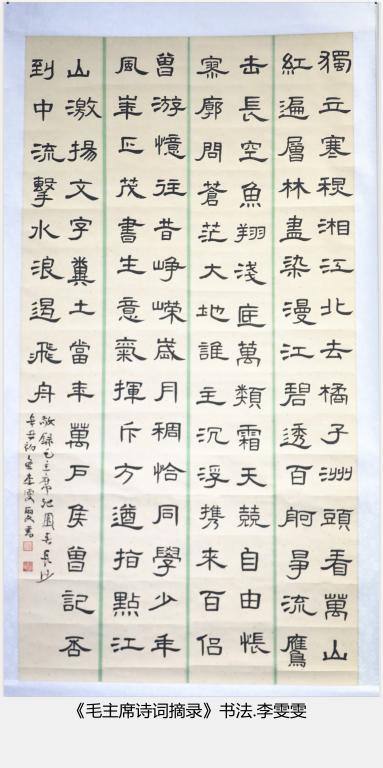 獨立寒秋湘江北去橘子洲頭看萬山
紅遍層林盡染漫江碧透百舸爭流鷹
击長空魚翔淺底萬類霜天競自由悵
寥廓問蒼茫大地誰主沉浮携來百侣
曾游憶往昔崢嶸歲月稠恰同學少年
風華正茂書生意氣揮斥方遒指點江
山激揚文字糞土當年萬戶侯曾記否
到中流擊水浪遏飛舟
敬録毛主席沁園春長沙
李雯雯書
《毛主席诗词摘录》书法.李雯雯